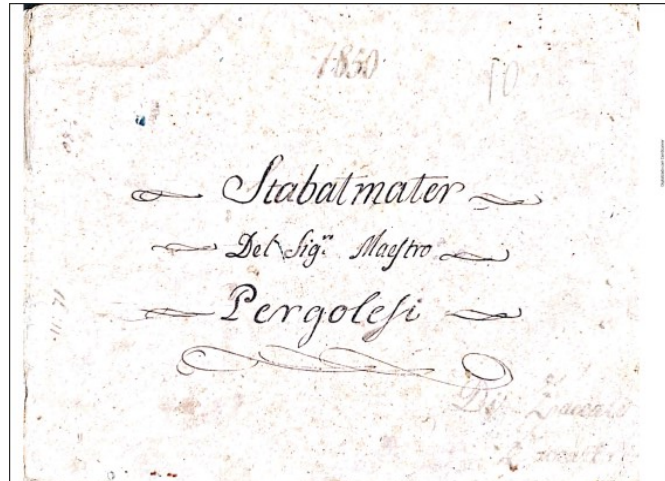 1850
10
Stabat mater
Del Sig.re Maeſtro
Pergoleſi
Di